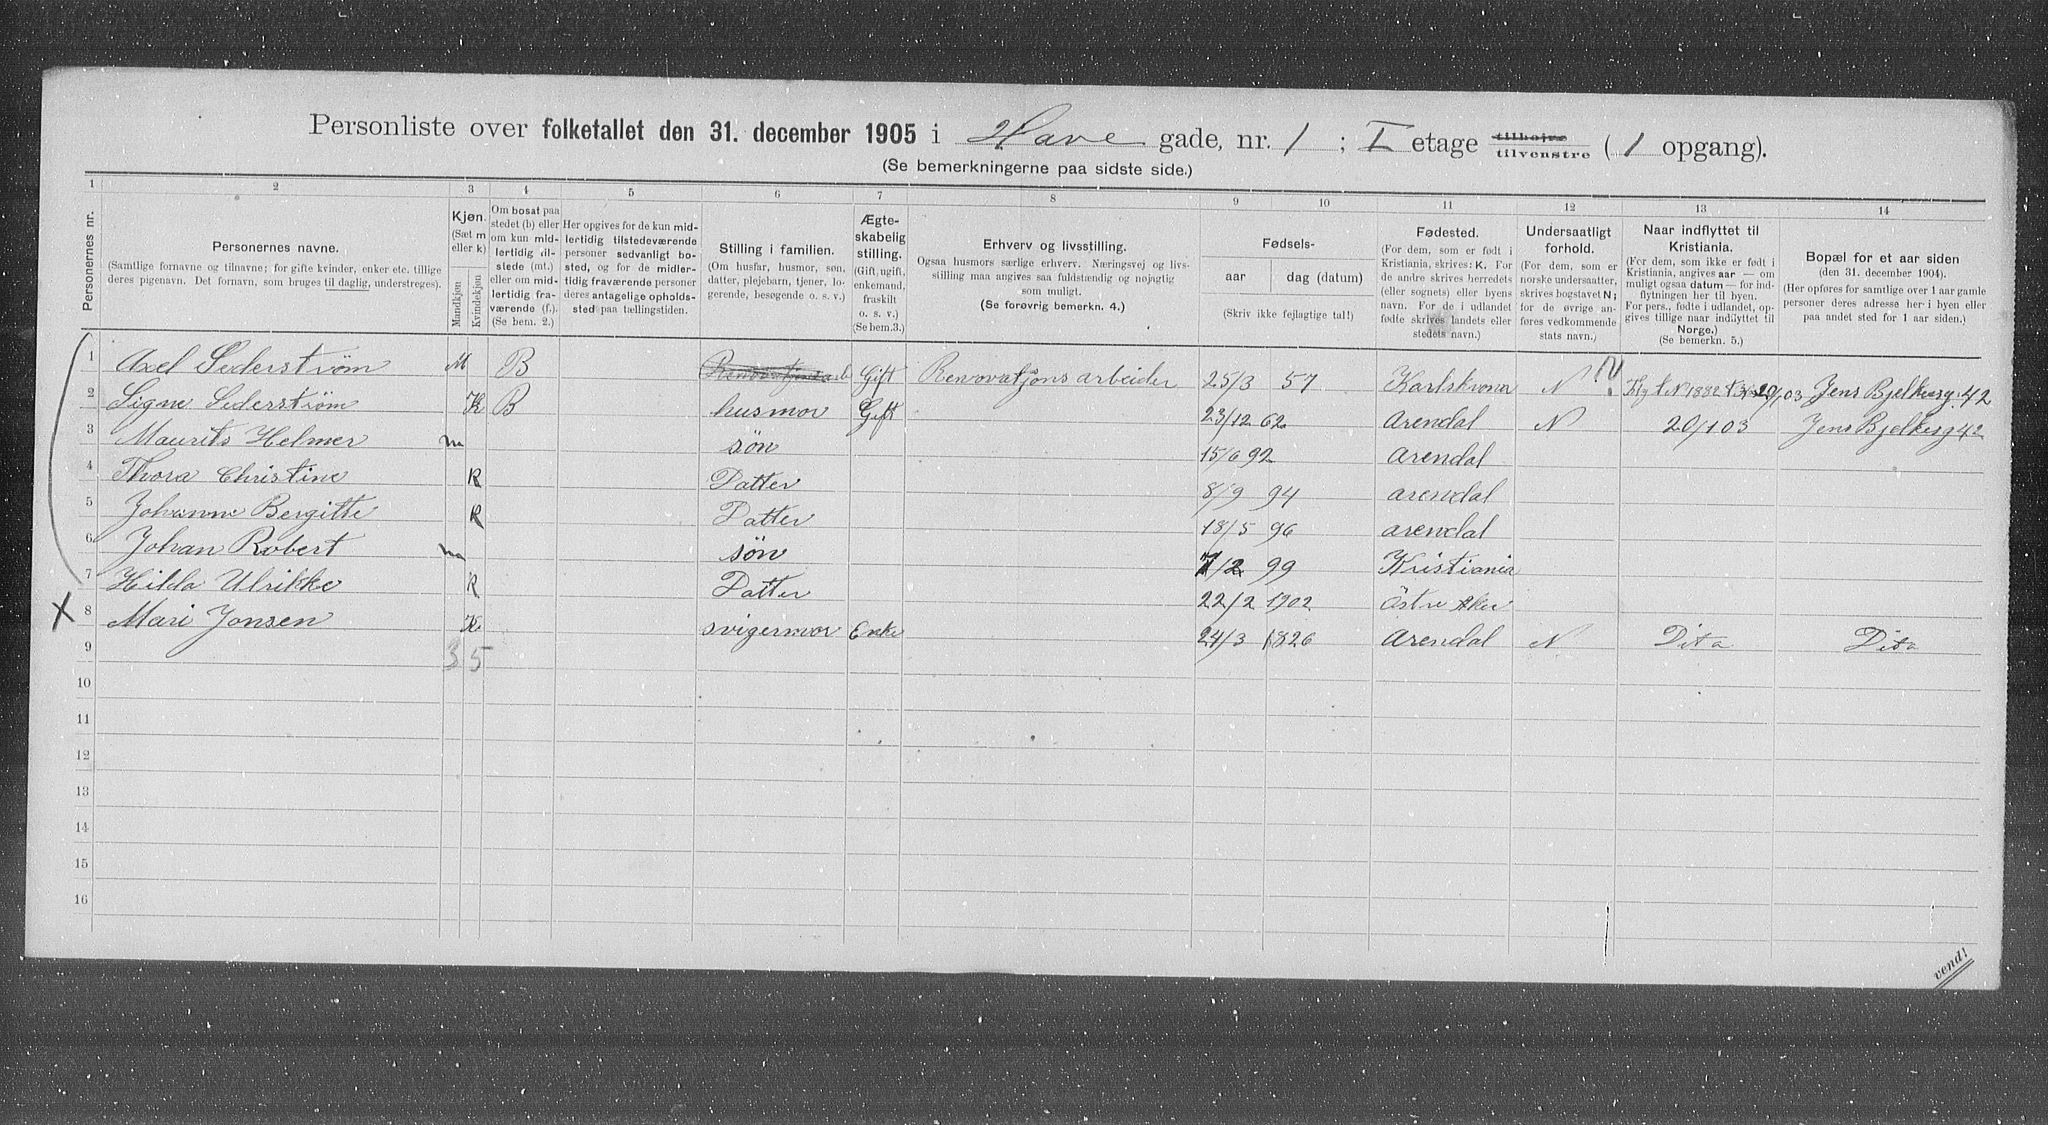 Personliste over folketallet den 31. december 1905 i Have gade, nr. 1 ; I etage tilhøjre tilvenstre ( 1 opgang).
(Se bemerkningerne paa sidste side.)
1 2 3 4 5 6 7 8 9 10 11 12 13 14
Personernes nr.
Personernes navne.
(Samtlige fornavne og tilnavne; for gifte kvinder, enker etc. tillige
deres pigenavn. Det fornavn, som bruges til daglig, understreges).
Kjøn.
(Sæt m
eller k)
Mandkjøn
Kvindekjøn
Om bosat paa
stedet (b) eller
om kun mid-
lertidig til-
stede (mt.)
eller om mid-
lertidig fra-
værende (f.).
(Se bem. 2.)
Her opgives for de kun mid-
lertidig tilstedeværende
personer sedvanlig bo-
sted, og for de midler-
tidig fraværende personer
deres antagelige opholds-
sted paa tællingstiden.
Stilling i familien.
(Om husfar, husmor, søn,
datter, plejebarn, tjener, lo-
gerende, besøgende o. s. v.)
Ægte-
skabelig
stilling.
(Gift, ugift,
enkemand,
fraskilt
o. s. v.)
(Se bem.3.)
Erhverv og livsstilling.
Ogsaa husmors særlige erhverv. Næringsvej og livs-
stilling maa angives saa fuldstændig og nøjagtig
som muligt.
(Se forøvrig bemerkn. 4.)
Fødsels-
aar dag (datum)
(Skriv ikke fejlagtige tal!)
Fødested.
(For dem, som er født i
Kristiania, skrives: K. For
de andre skrives herredets
(eller sognets) eller byens
navn. For de i udlandet
fødte skrives landets eller
stedets navn.)
Undersaatligt
forhold.
(For dem, som er
norske undersaatter,
skrives bogstavet N;
for de øvrige an-
føres vedkommende
stats navn.)
Naar indflyttet til
Kristiania.
(For dem, som ikke er født i
Kristiania, angives aar — om
muligt ogsaa datum — for ind-
flytningen her til byen.
For pers., fødte i udlandet, op-
gives tillige naar indflyttet til
Norge.)
(Se bemerkn. 5.)
Bopæl for et aar siden
(den 31. december 1904).
(Her opføres for samtlige over 1 aar gamle
personer deres adresse her i byen eller
paa andet sted for 1 aar siden.)
1 Axel Sederstrøm M B Gift Renovatjonsarbeider 25/3 57 Karlskrona N 1882 29/1 03 Jens Bjelkesg. 42
2 Signe Sederstrøm K B husmor Gift 23/12 62 Arendal N 20/1 03 Jens Bjelkesg 42
3 Maurits Helmer m søn 15/6 92 Arendal
4 Thora Christine K Datter 8/9 94 arendal
5 Johanne Bergitte K Datter 18/5 96 arendal
6 Johan Robert m søn 7/2 99 Kristiania
7 Hilda Ulrikke K Datter 22/2 1902 Östre Aker
X 8 Mari Jonsen K svigermor Enke 24/3 1826 Arendal N Dito Dito
9 3 5
10
11
12
13
14
15
16
vend!